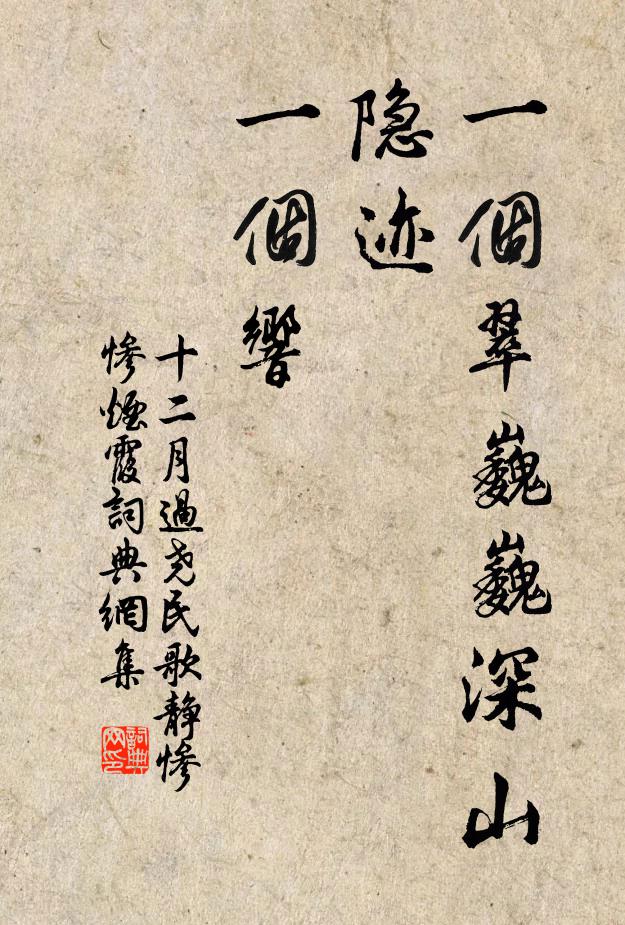 一個翠巍巍深山
隐迹
一個響
十二月過尧民歌静惨
惨煙霞詞典網集
詞典
网印